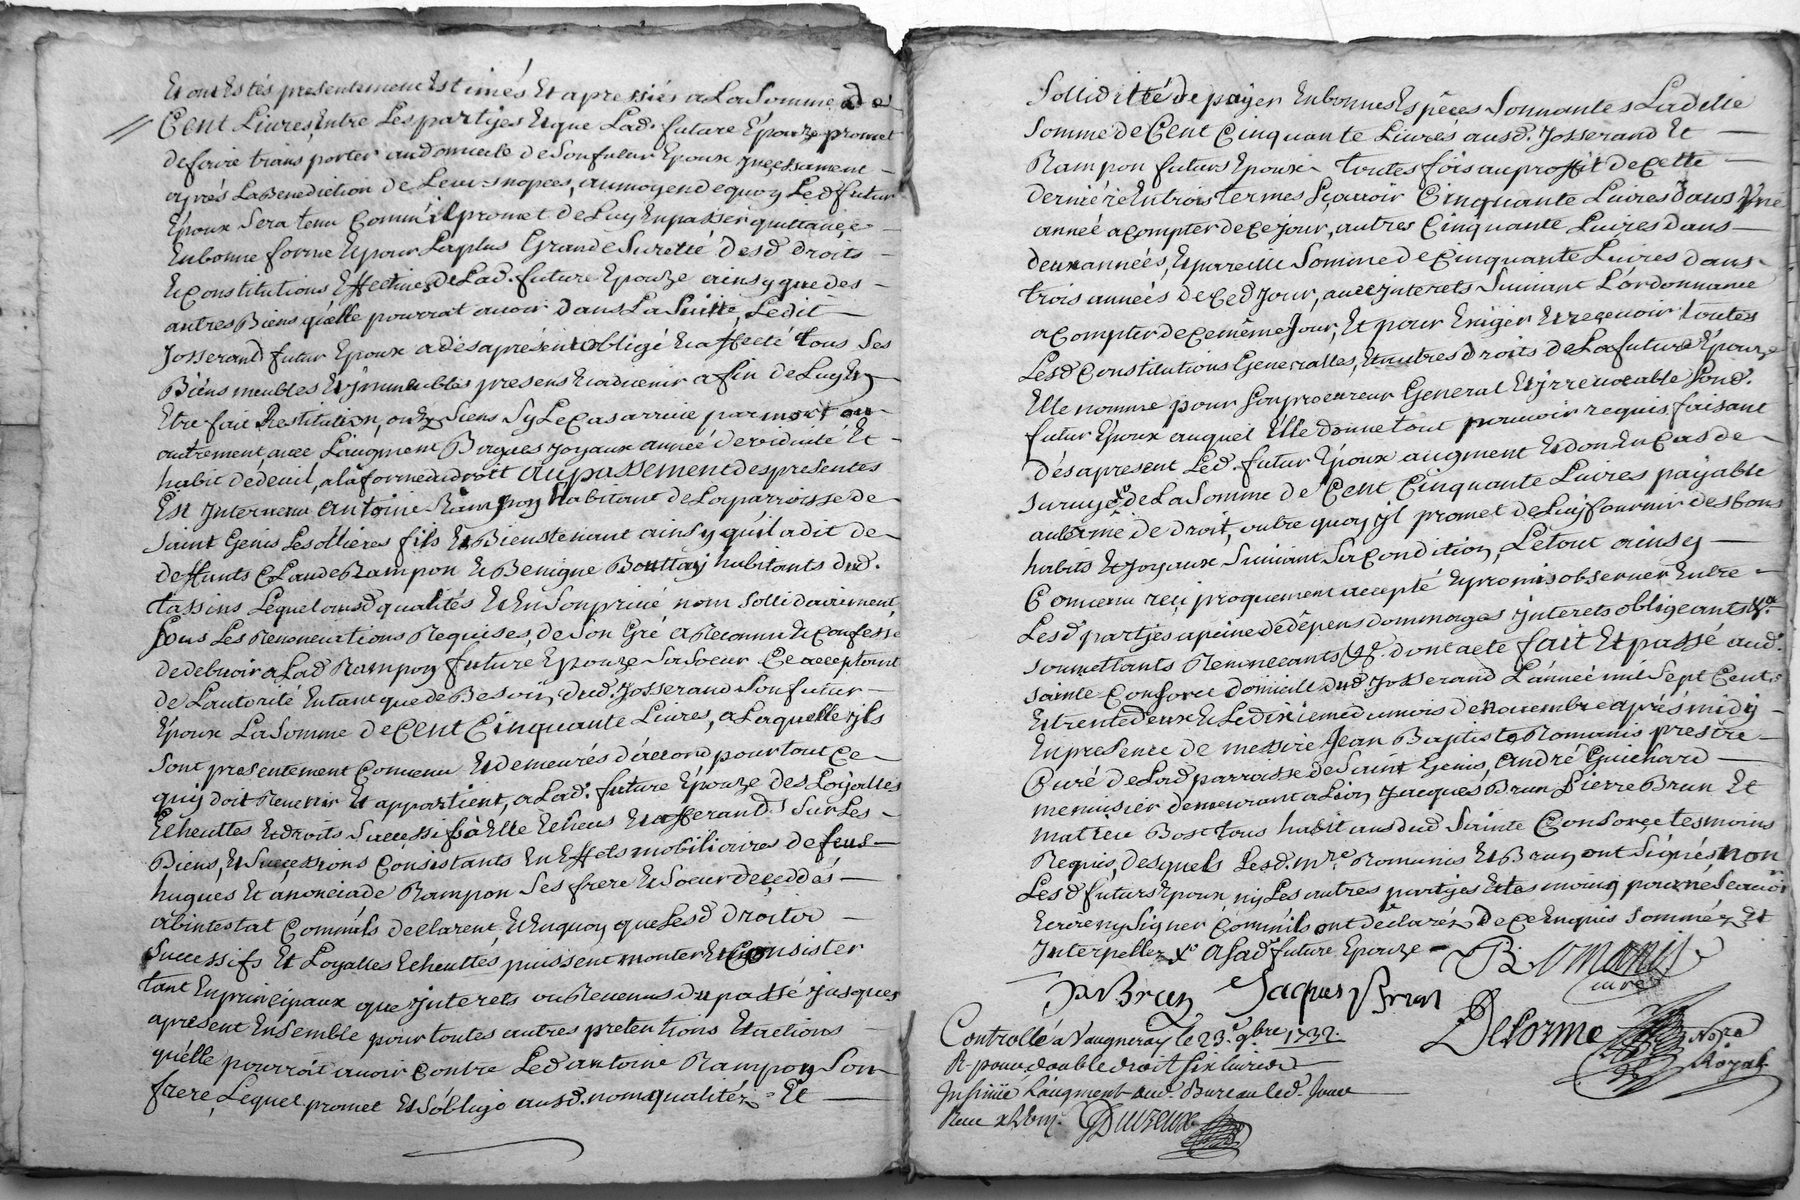 Et ont Estés presentement Estimés Et apressiés a La Somme de
Cent Livres Entre Les partyes Et que Lad. future Epouze promet
de faire trans porter au domicile de Son futur Epoux Incessament
aprés La Benediction de Leurs nopces, au moyen de quoy Led futur
Epoux Sera tenu Comm'il promet de Luy En passer quittance
En bonne forme Et pour La plus Grande Sureté desd droits
Et Constitutions Effectives de Lad. future Epouze ainsy que des
autres Biens qu'elle pourrat avoir dans La Suitte, Ledit
Josserand futur Epoux a dés aprésent obligé Et affecté tous Ses
Biens meubles Et immeubles presens Et advenir afin de Luy En
Etre fait Restitution, ou Ez Siens Sy Le Cas arrive par mort ou
autrement avec L'augment Bagues Joyaux année de viduité Et
habit de deuil, a la forme du droit au passement des presentes
Est Intervenu antoine Rampon habitant de La parroisse de
Saint Genis Les ollieres fils Et Bienstenant ainsy qu'il a dit de
deffunts Claude Rampon Et Benigne Bouttay habitants dud.
tassins Lequel ausd qualités Et En Son privé nom Sollidairement
Sous Les Renonciations Requises, de Son Gré a Reconnu Et Confessé
de debvoir a Lad Rampon future Epouze Sa Soeur Ce acceptant
de L'autorité En tant que de Besoin, dud. Josserand Son futur
Epoux La Somme de Cent Cinquante Livres, a Laquelle ils
Sont presentement Convenu Et demeurés d'accord pour tout Ce
quy doit Revenir Et appartient, a Lad. future Epouze des Loyalles
Echeuttes Et droits Successifs a Elle Echeus Et afferands Sur Les
Biens, Et Successions Consistants En Effets mobiliaires de feus
hugues Et anonciade Rampon Ses frere Et Soeur decedés
abintestat Comm'ils declarent Et En quoy que Lesd droits
Successifs Et Loyalles Echeuttes puissent monter Et Consister
tant En principaux que interets ou Revenus du passé jusques
apresent Ensemble pour toutes autres pretentions Et actions
qu'elle pourroit avoir Contre Led antoine Rampon Son
frere, Lequel promet Et S'obligé ausd. nom qualités Et
Sollidité de payer En bonnes Espéces Sonnantes Ladite
Somme de Cent Cinquante Livres ausd. Josserand Et
Rampon futurs Epoux toutes fois au proffit de Cette
derniére En trois termes Sçavoir Cinquante Livres dans Une
année a Compter de Ce jour, autres Cinquante Livres dans
deux années, Et pareille Somme de Cinquante Livres dans
trois années de Ced Jour, avec interets Suivant L'ordonnance
a Compter de Ce même Jour, Et pour Exiger Et reçevoir toutes
Lesd Constitutions Generalles, Et autres droits de La future Epouze
Elle nomme pour Son procureur General Et irrevocable Sond.
futur Epoux auquel Elle donne tout pouvoir requis faisant
dés apresent Led. futur Epoux augment Et don En Cas de
Survye x de La Somme de Cent Cinquante Livres payable
au terme de droit, outre quoy il promet de Luy fournir des bons
habits Et joyaux Suivant Sa Condition, Le tout ainsy
Convenu reciproquement accepté Et promis observer Entre
Lesd partyes a peine de dépens dommages interets obligeants &a
soumettants Renonceants &a. dont acte fait Et passé aud.
sainte Consorce domicile dud Josserand L'année mil Sept Cents
Et trente deux Et Le dixieme du mois de Novembre aprés midy
En presence de messire Jean Baptiste Romanis prestre
Curé de Lad parroisse de Saint Genis, andré Guichard
menuisier demeurant a Lion Jacques Brun Pierre Brun Et
matieu Bost tous habitans dud Sainte Consorce, tesmoins
Requis, desquels Lesd. mre. Romanis Et Brun ont Signés, non
Lesd futurs Epoux ny Les autres partyes Et tesmoins pour ne Scavoir
Ecrire ny Signer Comm'ils ont déclarés de Ce Enquis Sommés Et
Interpellez x a Lad future Epouze
Romanis
curé
P Brun Jacques Brun
Delorme Nore
Royal
Controllé a Vaugneray le 23e. 9bre 1732.
R. pour double droit six livres
Insinüé l'augment aud. Bureau led. Jour
Dureux